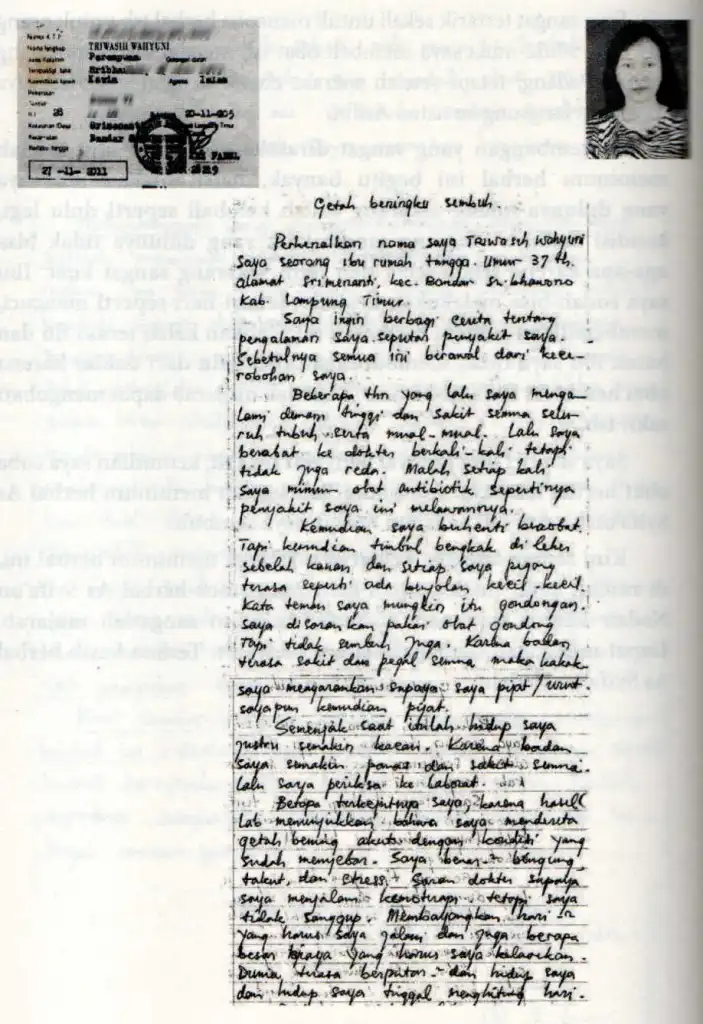 Nama lengkap
TRIWASIH WAHYUNI
Jenis Kelamin
Perempuan
Golongan darah
Sribha
Kawin
Agama
Islam
Pekerjaan
28
20-11-205
Kelurahan/Desa
Srimenant
Kecamatan
Bandar S
27-11-2011
Getah beningku sembuh.
Perkenalkan nama saya Triwasih Wahyuni
Saya seorang ibu rumah tangga. Umur 37 th.
Alamat Srimenanti, kec. Bandar Sri bhawono
Kab. Lampung Timur.
Saya ingin berbagi cerita tentang
pengalaman saya seputar penyakit saya.
Sebetulnya semua ini berawal dari kece-
robohan saya.
Beberapa thn yang lalu saya menga-
lami demam tinggi dan sakit semua selu-
ruh tubuh serta mual-mual. Lalu saya
berobat ke dokter berkali-kali tetapi
tidak juga reda. Malah setiap kali
saya minum obat antibiotik sepertinya
penyakit saya ini melawannya.
Kemudian saya berhenti berobat.
Tapi kemudian timbul bengkak di leher
sebelah kanan, dan setiap saya pegang
terasa seperti ada benjolan kecil kecil
Kata teman saya mungkin itu gondongan.
Saya disarankan pakai obat gondong
Tapi tidak sembuh juga. Karena badan
terasa sakit dan pegal semua, maka kakak
saya menyarankan supaya saya pijat/urut.
saya pun kemudian pijat.
Semenjak saat itulah hidup saya
justru semakin kacau. Karena badan
saya semakin panas dan sakit semua.
Lalu saya periksa ke laborat.
Betapa terkejutnya saya karena hasil
lab menunjukkan bahwa saya menderita
getah bening akut dengan kondisi yang
sudah menyebar. Saya benar-benar bingung,
takut, dan stress. Saran dokter supaya
saya menjalani kemoterapi tetapi saya
tidak sanggup. Membayangkan hari 2
yang harus saya jalani dan juga berapa
besar biaya yang harus saya keluarkan.
Dunia terasa berputar- dan hidup saya
dan hidup saya tinggal menghitung hari.